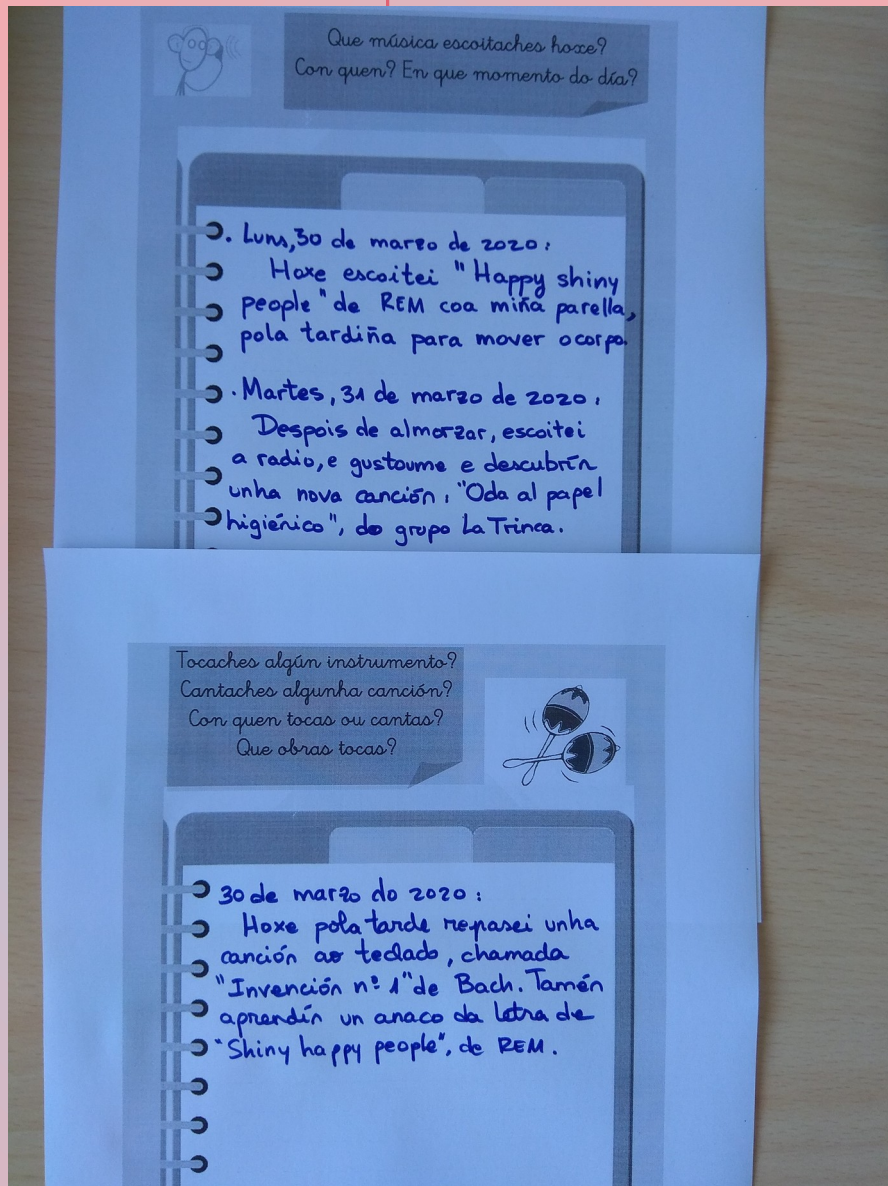 Que música escoitaches hoxe?
Con quen? En que momento do día?
. Luns, 30 de marzo de 2020:
Hoxe escoitei "Happy shiny
people" de REM coa miña parella,
pola tardiña para mover o corpo.
. Martes, 31 de marzo de 2020:
Despois de almorzar, escoitei
a radio, e gustoume e descubrín
unha nova canción: "Oda al papel
higiénico", do grupo La Trinca.
Tocaches algún instrumento?
Cantaches algunha canción?
Con quen tocas ou cantas?
Que obras tocas?
30 de marzo do 2020:
Hoxe pola tarde repasei unha
canción ao teclado, chamada
"Invención nº 1" de Bach. Tamén
aprendín un anaco da letra de
"Shiny happy people", de REM.